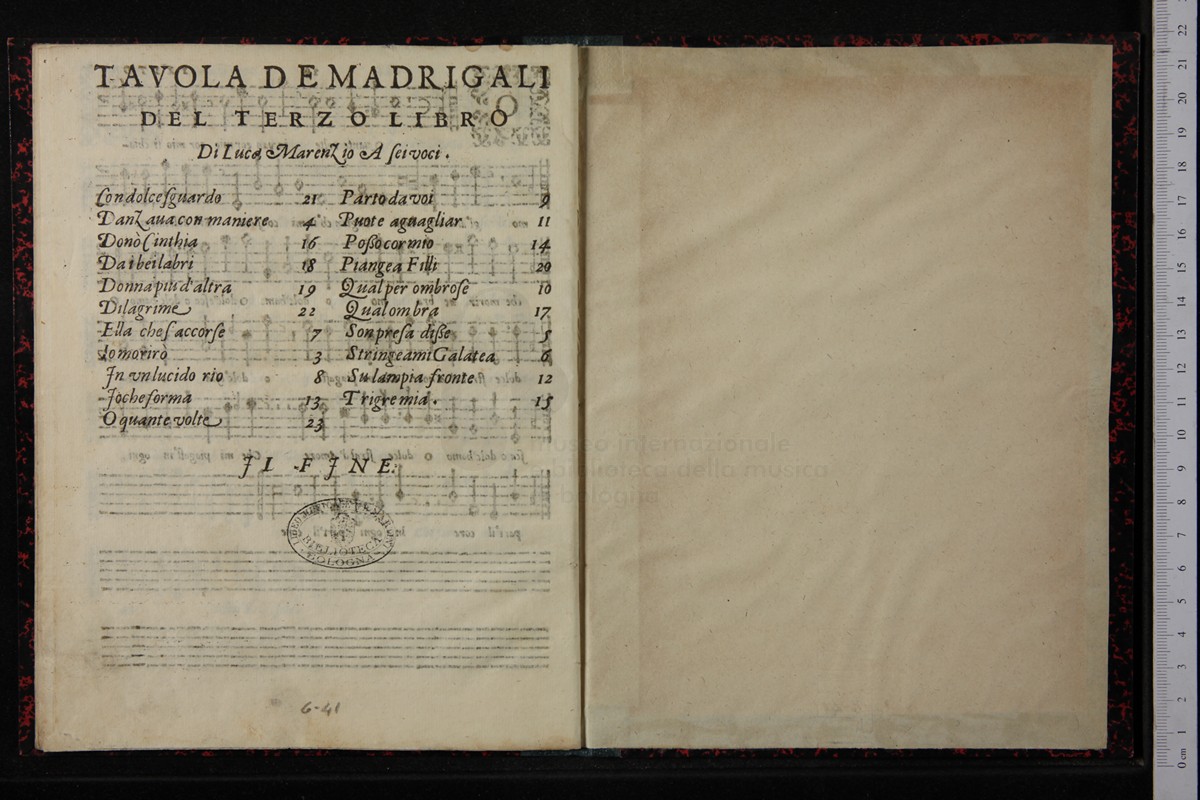 TAVOLA DE MADRIGALI
DEL TERZO LIBRO
Di Luca Marenzio A sei voci.
Con dolce sguardo 21
Danzaua con maniere 4
Donò Cinthia 16
Da i bei labri 18
Donna piu d'altra 19
Di lagrime 22
Ella che s'accorse 7
Io morirò 3
In vn lucido rio 8
Io che forma 13
O quante volte 23
Parto da voi 9
Puote aguagliar 11
Posso cor mio 14
Piangea Filli 20
Qual per ombrose 10
Qual ombra 17
Son presa disse 5
Stringeami Galatea 6
Su l'ampia fronte 12
Trigre mia. 15
IL FINE.
BIBLIOTECA
BOLOGNA
6-41
museo internazionale
biblioteca della musica
bologna
0 cm 1 2 3 4 5 6 7 8 9 10 11 12 13 14 15 16 17 18 19 20 21 22